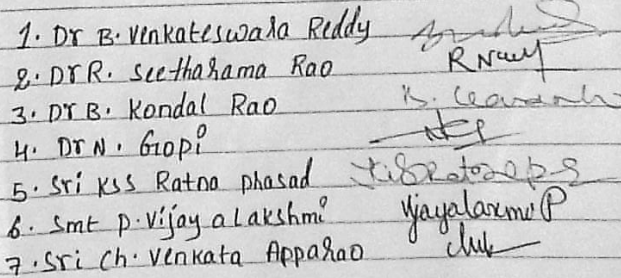 1. Dr B. Venkateswara Reddy
2. Dr R. Seetharama Rao
3. Dr B. Kondal Rao
4. Dr N. Gopi
5. Sri KSS Ratna prasad
6. Smt P. Vijayalakshmi Vijayalaxmi P
7. Sri Ch. Venkata Apparao